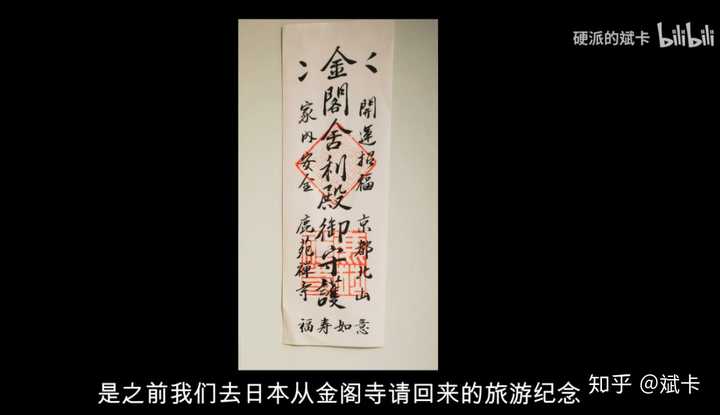 硬派的斌卡 bilibili
開運招福 京都北山
金閣舎利殿御守護
家内安全 鹿苑禅寺
福寿如意
是之前我们去日本从金阁寺请回来的旅游纪念
知乎 @斌卡